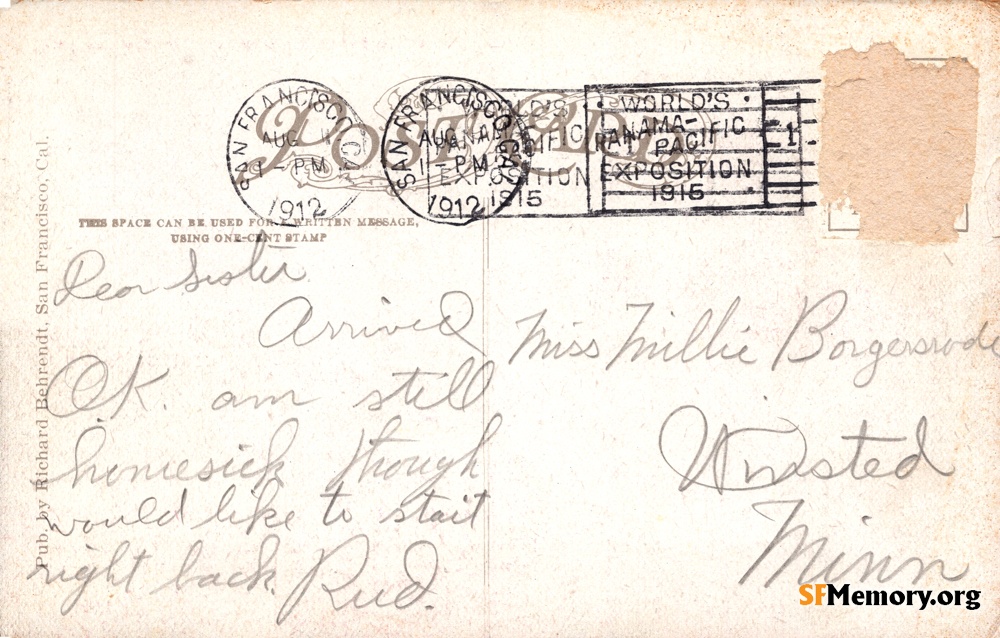 POST CARD
SAN FRANCISCO, CAL.
AUG
1 PM
1912
SAN FRANCISCO, CAL.
AUG
1 - PM
1912
WORLD'S
PANAMA-
PACIFIC
EXPOSITION
1915
1
THIS SPACE CAN BE USED FOR A WRITTEN MESSAGE,
USING ONE-CENT STAMP
Pub. by Richard Behrendt, San Francisco, Cal.
Dear Sister
Arrived
OK. am still
homesick though
would like to start
right back. Rud.
Miss Millie Borgersrode
Winsted
Minn
SFMemory.org